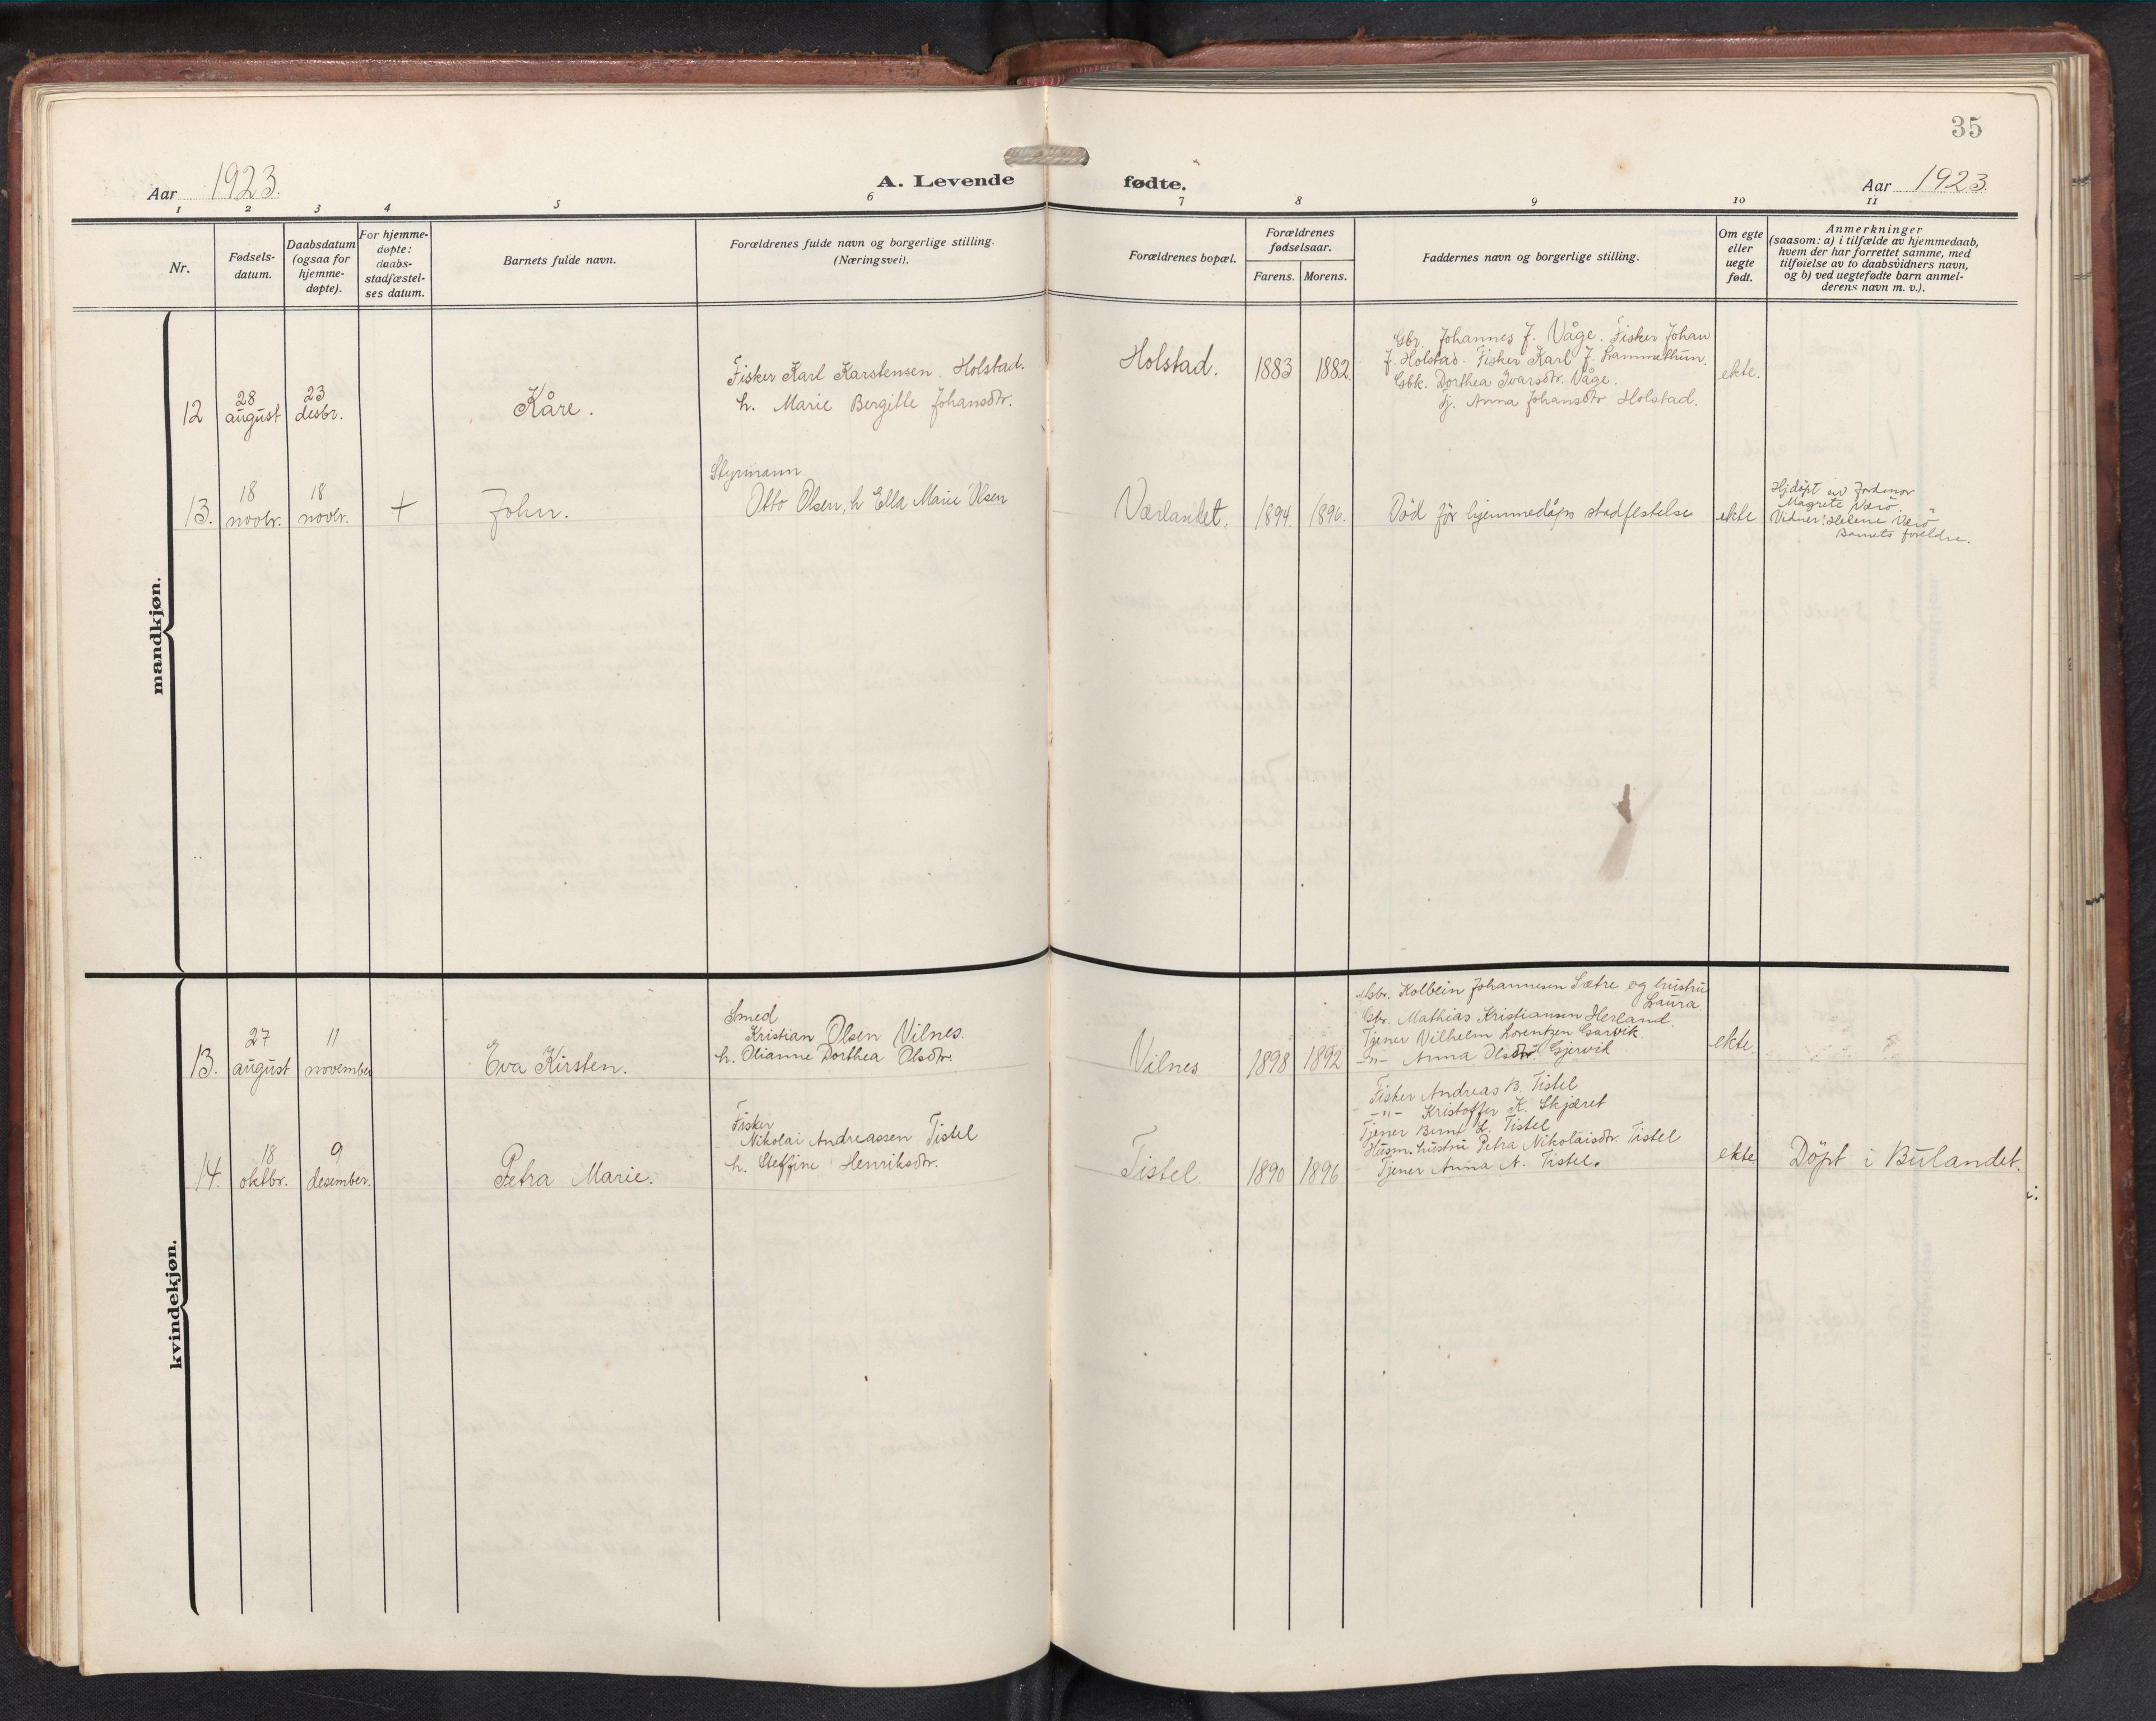 35
Aar 1923.
A. Levende fødte.
Aar 1923.
1 2 3 4 5 6 7 8 9 10 11
Nr.
Fødsels-
datum.
Daabsdatum
(ogsaa for
hjemme-
døpte).
For hjemme-
døpte:
daabs-
stadfæstel-
ses datum.
Barnets fulde navn.
Forældrenes fulde navn og borgerlige stilling.
(Næringsvei).
Forældrenes bopæl.
Forældrenes
fødselsaar.
Farens. Morens.
Faddernes navn og borgerlige stilling.
Om egte
eller
uegte
født.
Anmerkninger
(saasom: a) i tilfælde av hjemmedaab,
hvem der har forrettet samme, med
tilføielse av to daabsvidners navn,
og b) ved uegtefødte barn anmel-
derens navn m. v.).
mandkjøn.
12
28
august
23
desbr.
Kåre.
Fisker Karl Karstensen Holstad.
h. Marie Bergitte Johansdtr.
Holstad.
1883
1882.
Gbr. Johannes J. Våge. Fisker Johan
J. Holstad. Fisker Karl J. Lammethun.
Gbk. Dorthea Ivarsdtr. Våge.
Tj. Anna Johansdtr Holstad.
ekte.
13.
18
novbr.
18
novbr.
+
John.
Styrmann
Otto Olsen, h Ella Marie Olsen
Værlandet.
1894.
1896.
Död för hjemmedåps stadfestelse
ekte
Hjdöpt av Jordmor
Magrete Værö.
Vidner: Helene Værö
Barnets foreldre.
kvindekjøn.
13.
27
august
11
november
Eva Kirsten.
Smed
Kristian Olsen Vilnes.
h. Olianne Dorthea Olsdtr.
Vilnes
1898
1892
Gbr. Kolbein Johannesen Sætre og hustru
Laura
Gbr. Mathias Kristiansen Herland.
Tjener Vilhelm Lorentzen Garvik.
-"- Anna Olsdtr. Gjervik
ekte.
14.
18
oktbr.
9
desember.
Petra Marie.
Fisker
Nikolai Andreassen Tistel
h. Steffine Henriksdtr.
Tistel.
1890
1896
Fisker Andreas B. Tistel
-"- Kristoffer K. Skjæret
Tjener Bernt L. Tistel
Husm. hustru Petra Nikolaisdtr. Tistel
Tjener Anna A. Tistel.
ekte
Döpt i Bulandet.